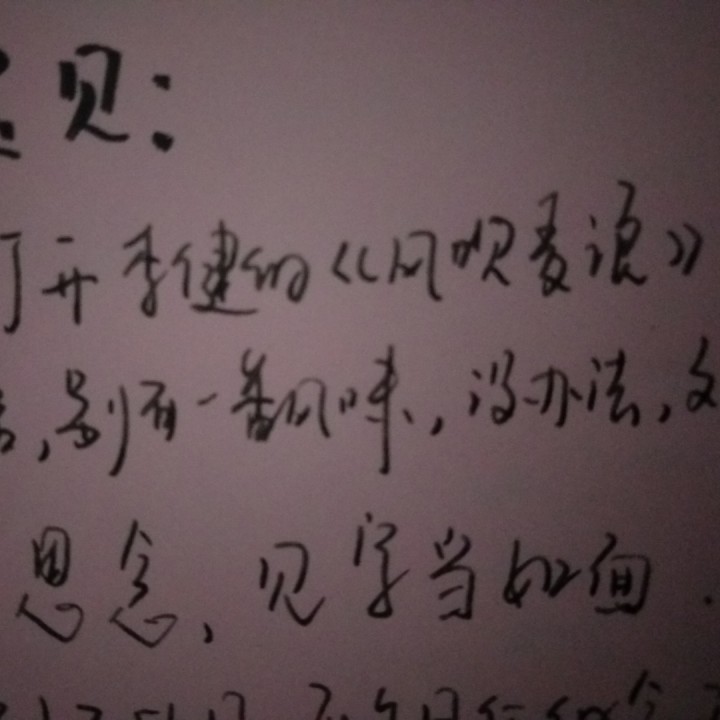 见：
打开李健的《风吹麦浪》
，别有一番风味，没办法，文
思念，见字当如面.